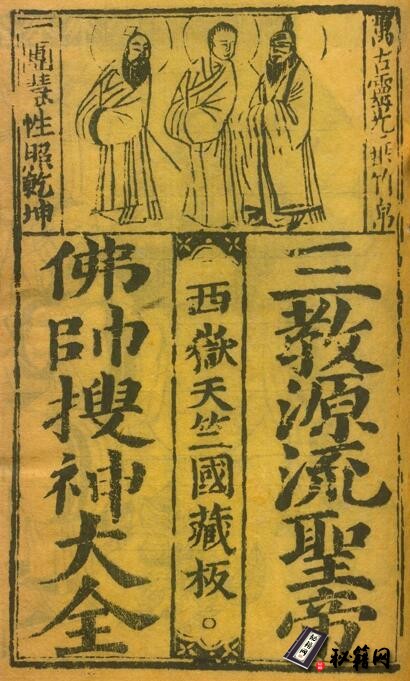 萬古靈光竹帛
一團慧性照乾坤
三教源流聖帝
西嶽天竺國藏板。
佛帥搜神大全
秘籍网